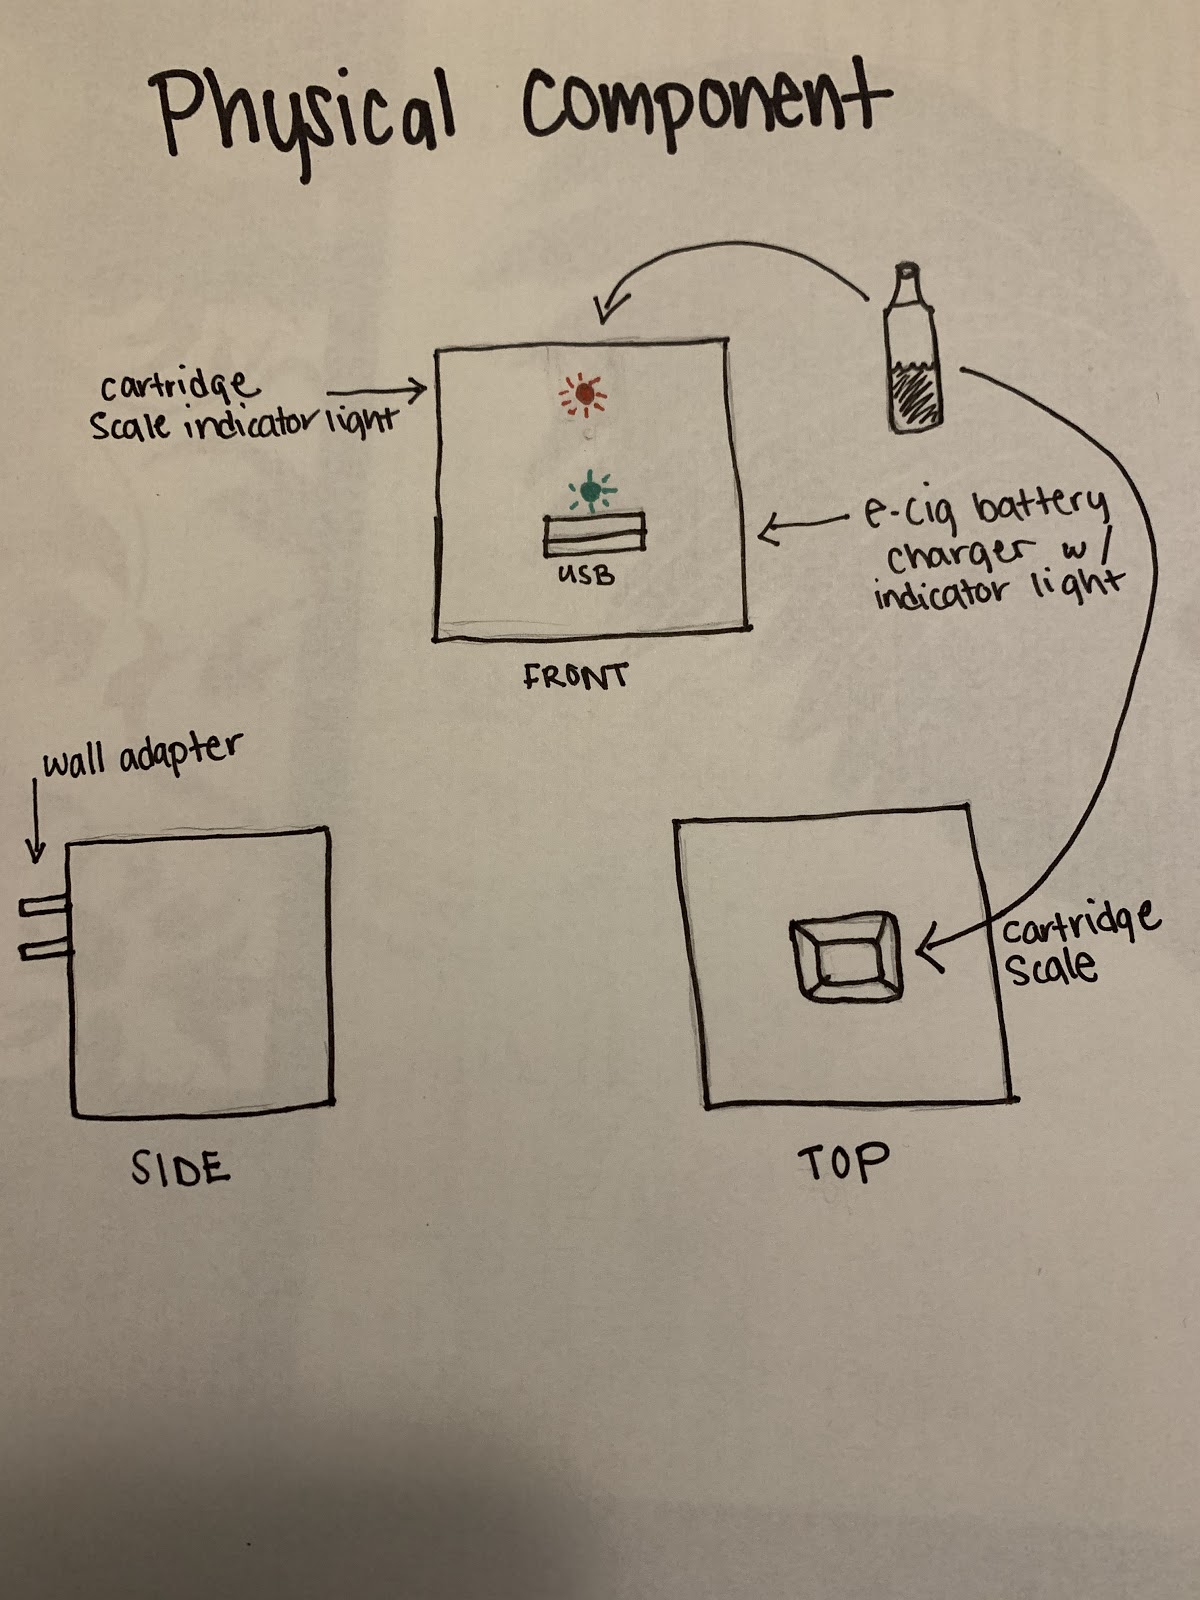 Physical Component
cartridge
scale indicator light
e-cig battery
charger w/
indicator light
USB
FRONT
wall adapter
cartridge
scale
SIDE
TOP